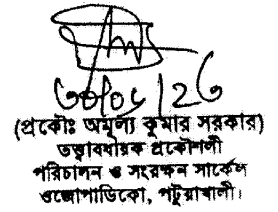 ৩০/০৮/২৩
(প্রকৌঃ অমূল্য কুমার সরকার)
তত্ত্বাবধায়ক প্রকৌশলী
পরিচালন ও সংরক্ষন সার্কেল
ওজোপাডিকো, পটুয়াখালী।